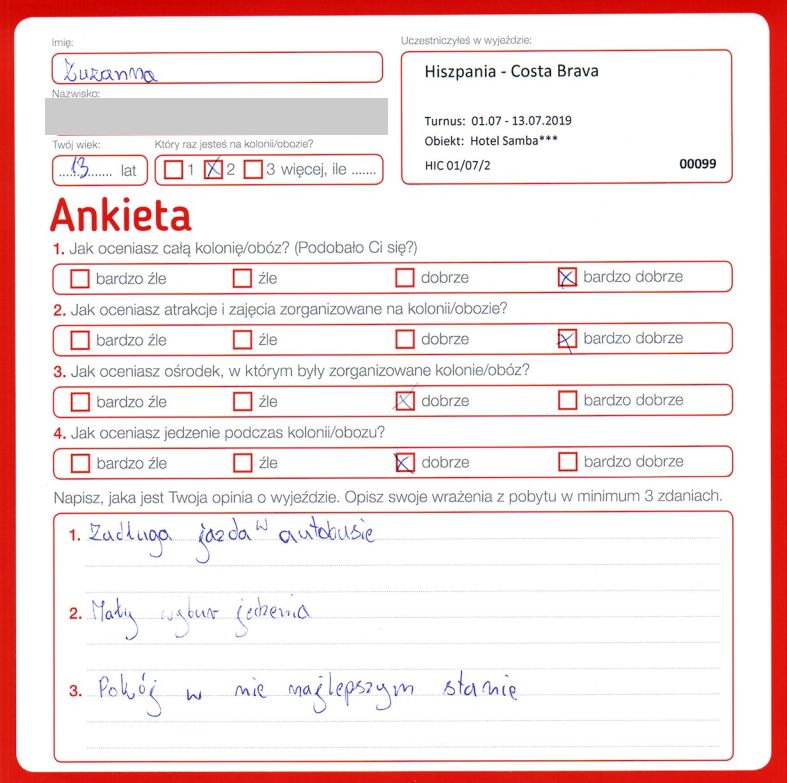 Imię:
Zuzanna
Nazwisko:
Twój wiek:
Który raz jesteś na kolonii/obozie?
.....13...... lat
1 2 3 więcej, ile .......
Uczestniczyłeś w wyjeździe:
Hiszpania - Costa Brava
Turnus: 01.07 - 13.07.2019
Obiekt: Hotel Samba***
HIC 01/07/2 00099
Ankieta
1. Jak oceniasz całą kolonię/obóz? (Podobało Ci się?)
bardzo źle źle dobrze bardzo dobrze
2. Jak oceniasz atrakcje i zajęcia zorganizowane na kolonii/obozie?
bardzo źle źle dobrze bardzo dobrze
3. Jak oceniasz ośrodek, w którym były zorganizowane kolonie/obóz?
bardzo źle źle dobrze bardzo dobrze
4. Jak oceniasz jedzenie podczas kolonii/obozu?
bardzo źle źle dobrze bardzo dobrze
Napisz, jaka jest Twoja opinia o wyjeździe. Opisz swoje wrażenia z pobytu w minimum 3 zdaniach.
1. Zadługa jazda w autobusie
2. Mały wybur jedzenia
3. Pokój w nie najlepszym stanie